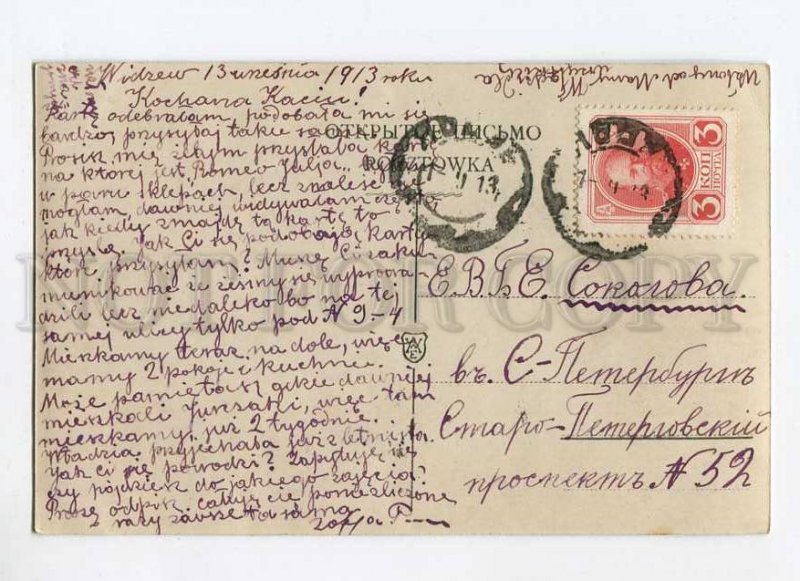 Widzew 13 września 1913 roku
Kochana Kaciu!
Kartę odebrałam, podobała mi się
bardzo, przysyłaj takie
ОТКРЫТОЕ ПИСЬМО
Proszę mię żebym przysłała kartę
POCZTÓWKA
na której jest Romeo Julja
w paru sklepach, lecz znaleść nie
mogłam, dawniej widywałam często
jak kiedy znajdę tą kartę to
przyślę. Jak Ci się podobają karty
które przysyłam? Muszę Ci zako-
munikować że żeśmy się wyprowa-
dzili lecz niedaleko bo na tej
samej ulicy tylko pod N 9-4
Mieszkamy teraz na dole, więc
mamy 2 pokoje i kuchnię.
Może pamiętasz gdzie dawniej
mieszkali więc tam
mieszkamy już 2 tygodnie.
Władzia przyjechała już z letniska
Jak Ci się powodzi? Zapytuję się
czy pójdziesz do jakiego zajęcia?
Proszę o odpis. całuję cię pomezliczone
z razy zawsze ta sama
3 КОП 3
Е.В.Б.Е. Соколова.
въ С-Петербургъ
Старо-Петерговскій
проспектъ N 52
NOT FOR COPY